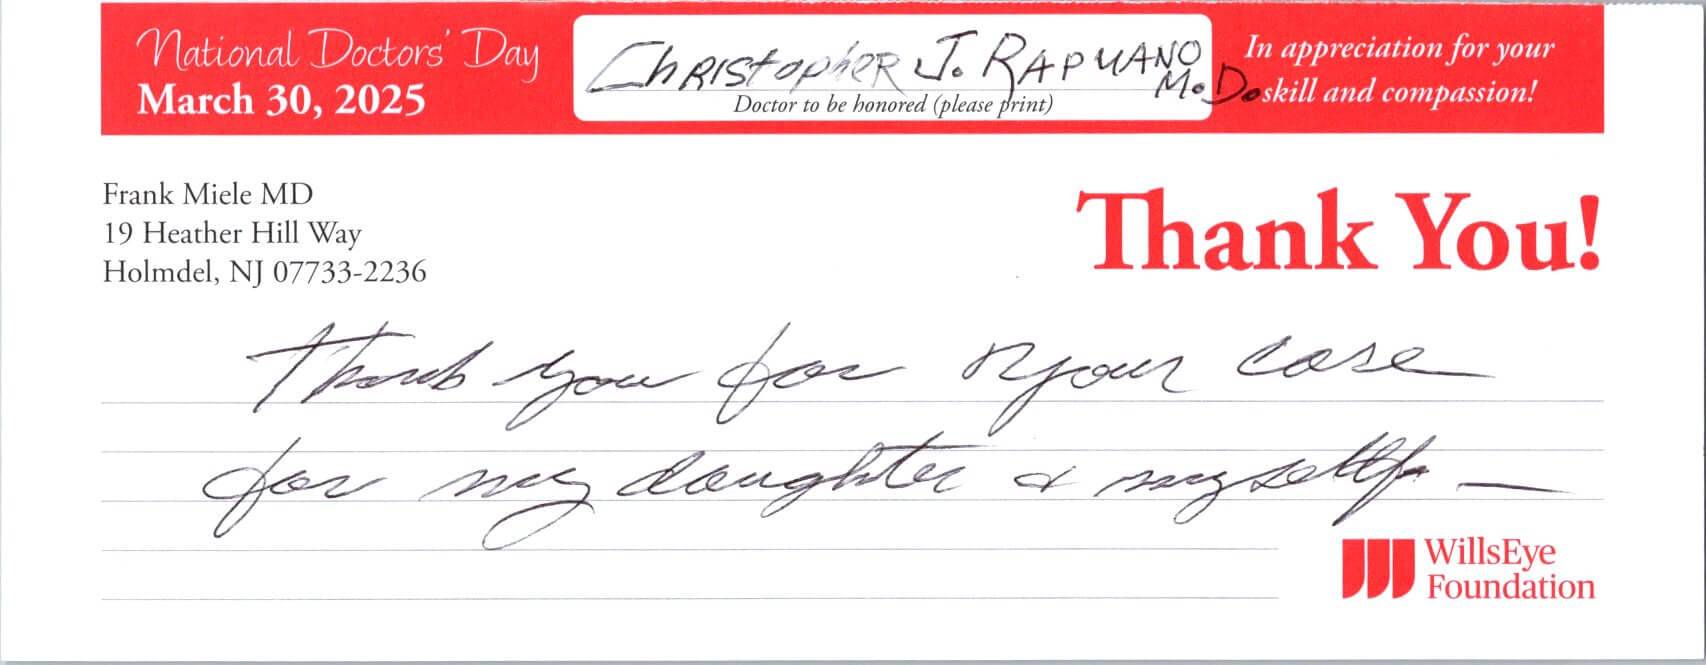 National Doctors' Day
March 30, 2025
Christopher J. Rapuano
M.D.
Doctor to be honored (please print)
In appreciation for your
skill and compassion!
Frank Miele MD
19 Heather Hill Way
Holmdel, NJ 07733-2236
Thank You!
Thank you for your care
for my daughter & myself —
WillsEye
Foundation